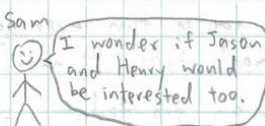 Sam
I wonder if Jason
and Henry would
be interested too.